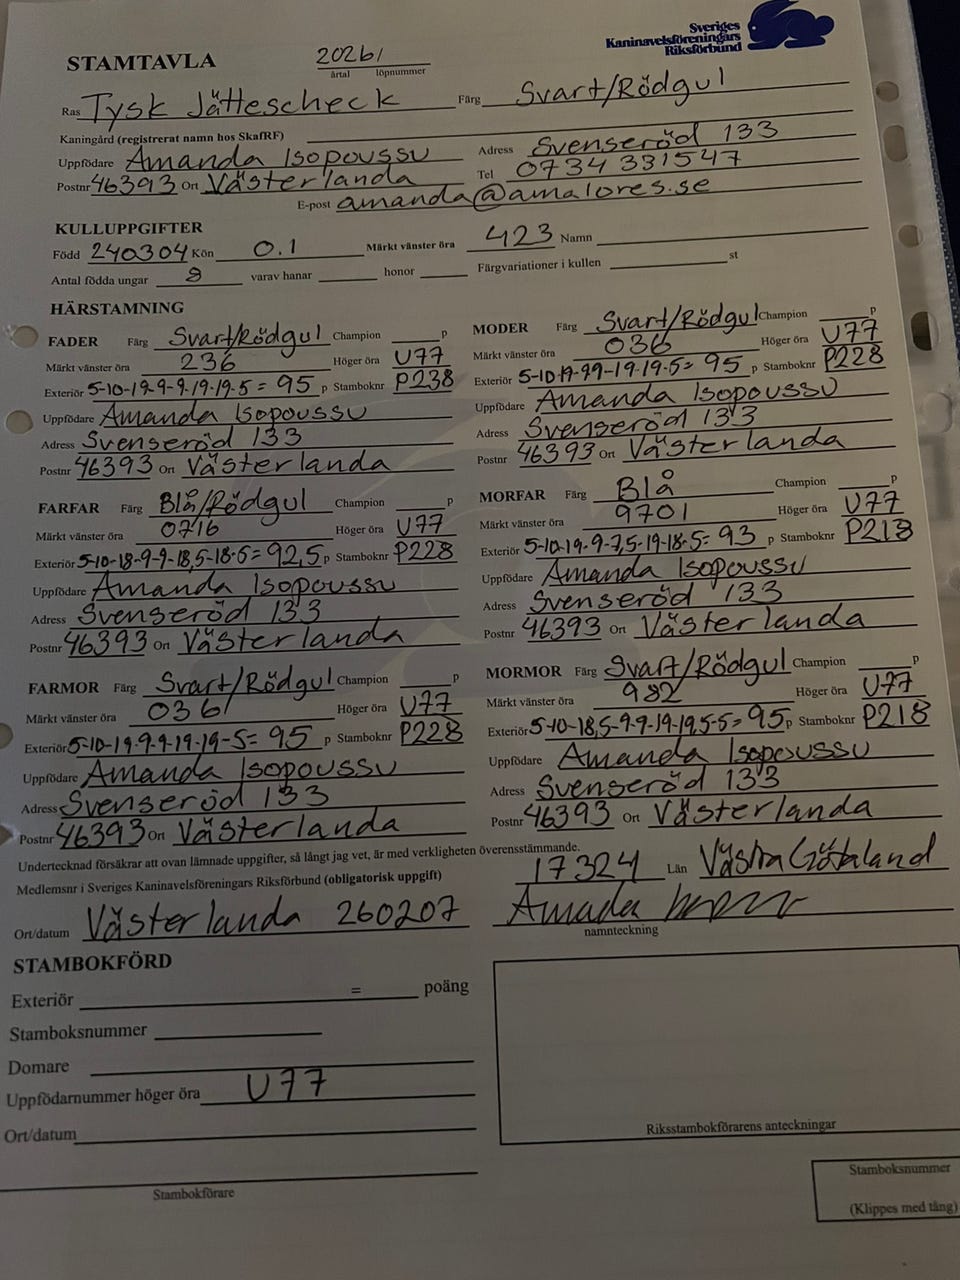 Sveriges
Kaninavelsföreningars
Riksförbund
STAMTAVLA 2026/
årtal löpnummer
Ras Tysk Jättescheck Färg Svart/Rödgul
Kaningård (registrerat namn hos SkafRF)
Uppfödare Amanda Isopoussu Adress Svenseröd 133
Postnr 46393 Ort Västerlanda Tel 0734 331547
E-post amanda@amalores.se
KULLUPPGIFTER
Född 240304 Kön 0.1 Märkt vänster öra 423 Namn
Antal födda ungar 8 varav hanar honor Färgvariationer i kullen st
HÄRSTAMNING
FADER Färg Svart/Rödgul Champion p
Märkt vänster öra 236 Höger öra U77
Exteriör 5-10-19-9-9-19-19-5=95 p Stamboknr P238
Uppfödare Amanda Isopoussu
Adress Svenseröd 133
Postnr 46393 Ort Västerlanda
MODER Färg Svart/Rödgul Champion p
Märkt vänster öra 036 Höger öra U77
Exteriör 5-10-19-99-19-19-5=95 p Stamboknr P228
Uppfödare Amanda Isopoussu
Adress Svenseröd 133
Postnr 46393 Ort Västerlanda
FARFAR Färg Blå/Rödgul Champion p
Märkt vänster öra 0716 Höger öra U77
Exteriör 5-10-18-9-9-18,5-18-5=92,5 p Stamboknr P228
Uppfödare Amanda Isopoussu
Adress Svenseröd 133
Postnr 46393 Ort Västerlanda
MORFAR Färg Blå Champion p
Märkt vänster öra 9701 Höger öra U77
Exteriör 5-10-19-9-7,5-19-18-5=93 p Stamboknr P218
Uppfödare Amanda Isopoussu
Adress Svenseröd 133
Postnr 46393 Ort Västerlanda
FARMOR Färg Svart/Rödgul Champion p
Märkt vänster öra 036 Höger öra U77
Exteriör 5-10-19-9-9-19-19-5=95 p Stamboknr P228
Uppfödare Amanda Isopoussu
Adress Svenseröd 133
Postnr 46393 Ort Västerlanda
MORMOR Färg Svart/Rödgul Champion p
Märkt vänster öra 982 Höger öra U77
Exteriör 5-10-18,5-9-9-19-19,5-5=95 p Stamboknr P218
Uppfödare Amanda Isopoussu
Adress Svenseröd 133
Postnr 46393 Ort Västerlanda
Undertecknad försäkrar att ovan lämnade uppgifter, så långt jag vet, är med verkligheten överensstämmande.
Medlemsnr i Sveriges Kaninavelsföreningars Riksförbund (obligatorisk uppgift) 17324 Län Västra Götaland
Ort/datum Västerlanda 260207 Amada
namnteckning
STAMBOKFÖRD
Exteriör = poäng
Stamboksnummer
Domare
Uppfödarnummer höger öra U77
Ort/datum
Stambokförare
Riksstambokförarens anteckningar
Stamboksnummer
(Klippes med tång)